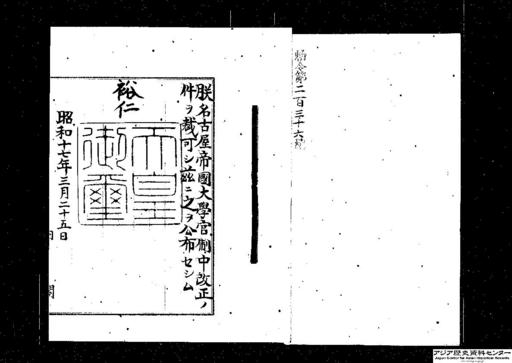 勅令第二百三十六号
朕名古屋帝國大學官制中改正ノ
件ヲ裁可シ茲ニ之ヲ公布セシム
裕仁
天皇御璽
昭和十七年三月二十五日
アジア歴史資料センター
Japan Center for Asian Historical Records